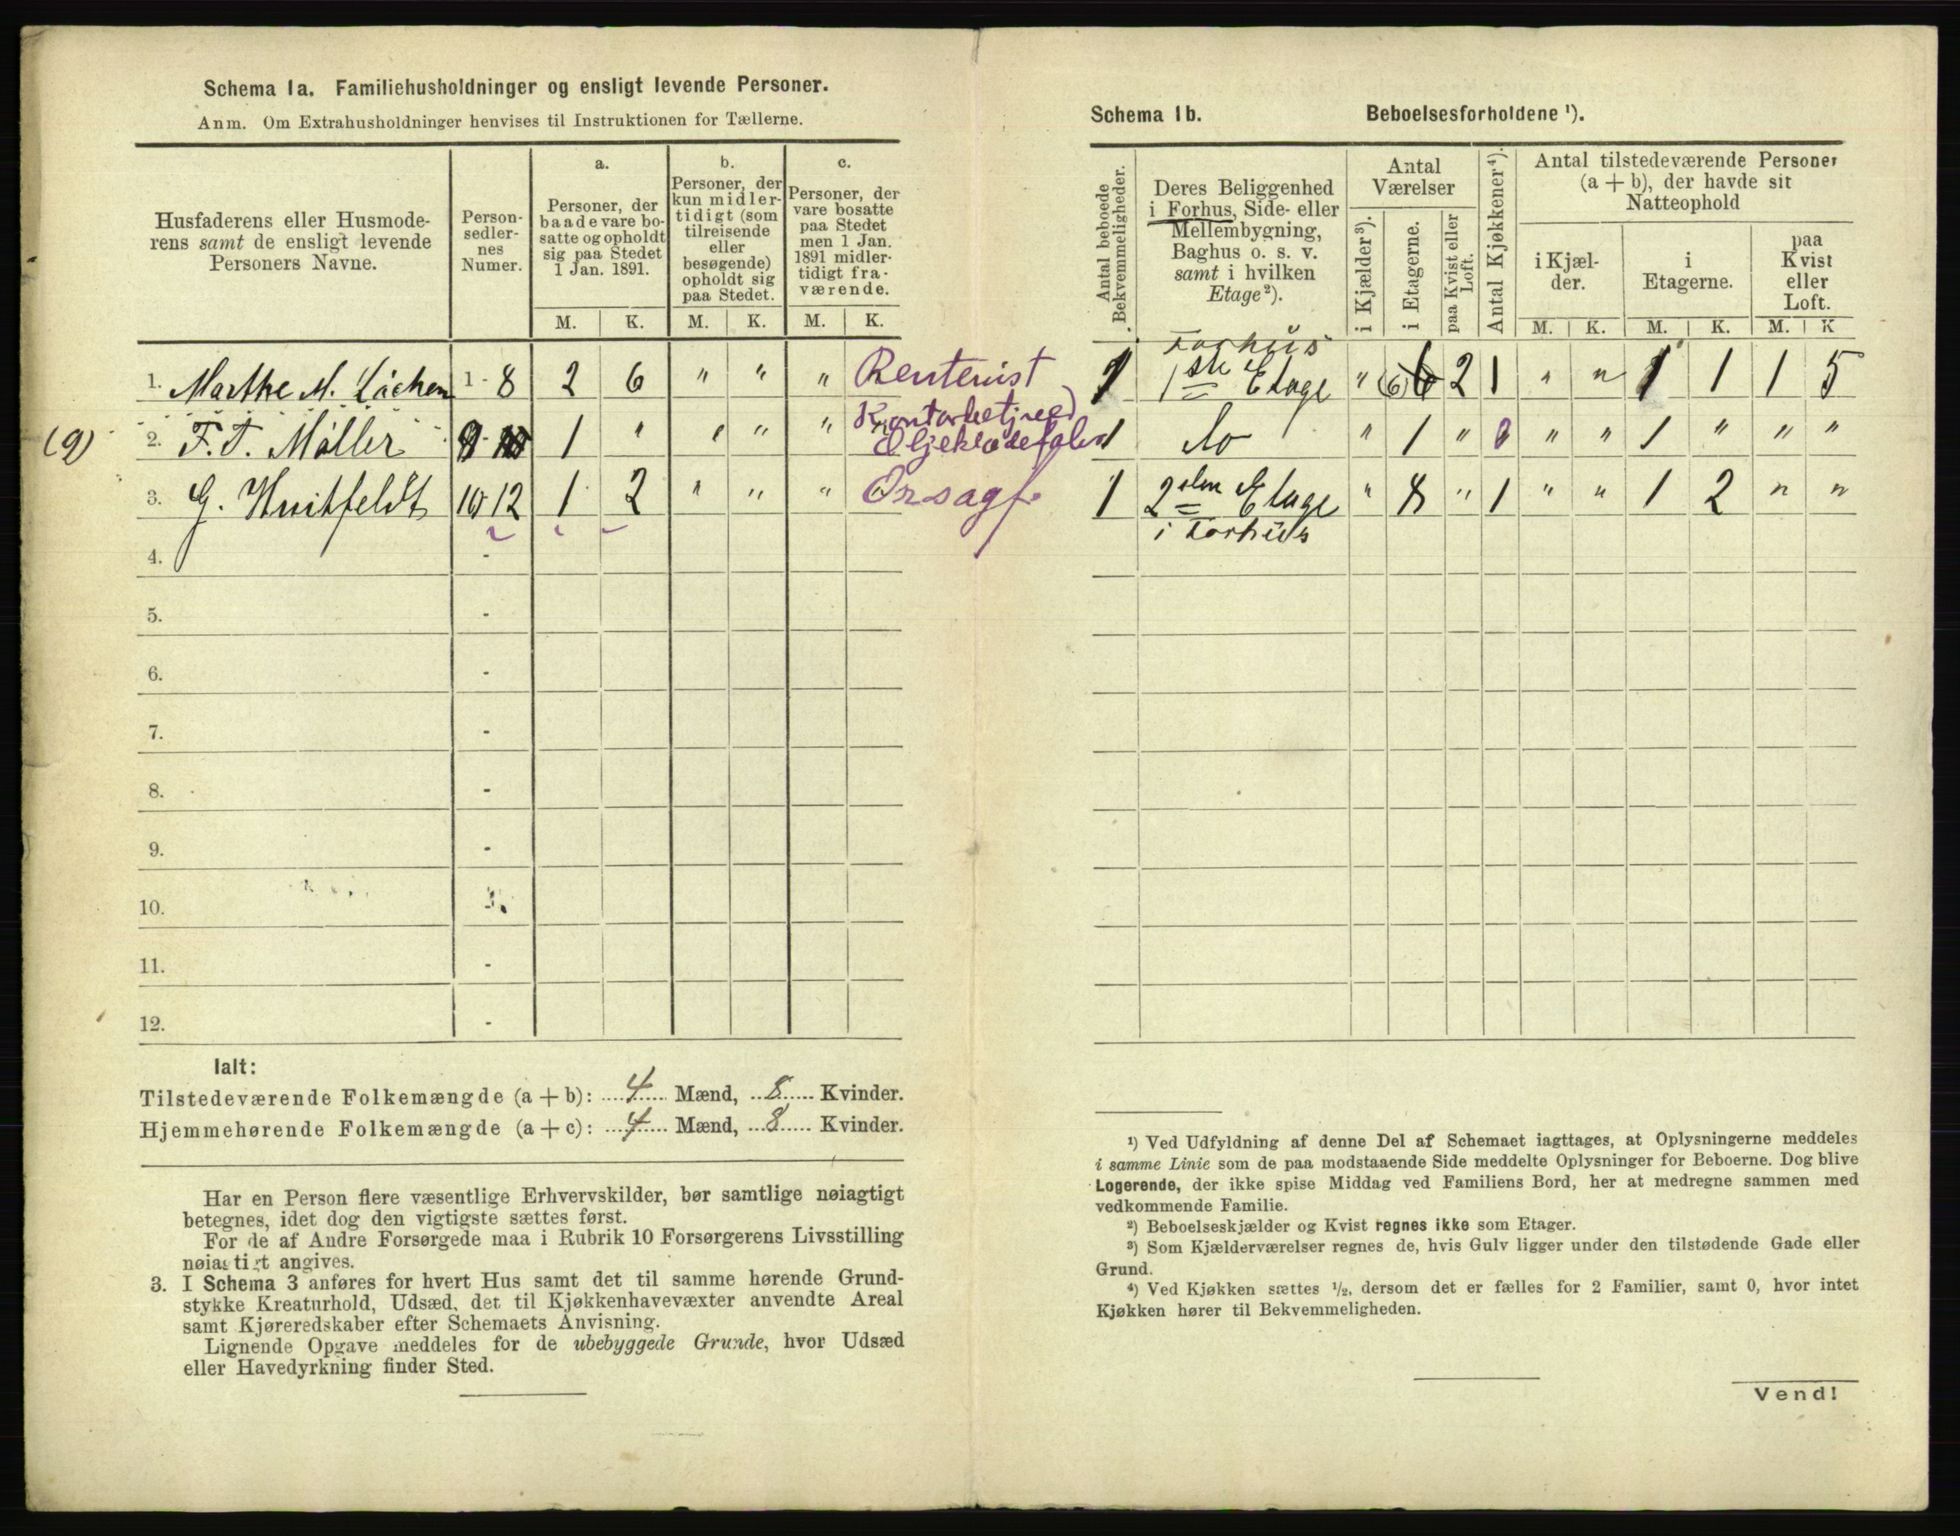 Schema 1a. Familiehusholdninger og ensligt levende Personer.
Anm. Om Extrahusholdninger henvises til Instruktionen for Tællerne.
Husfaderens eller Husmode-
rens samt de ensligt levende
Personers Navne.
Person-
sedler-
nes
Numer.
a.
Personer, der
baade vare bo-
satte og opholdt
sig paa Stedet
1 Jan. 1891.
b.
Personer, der
kun midler-
tidigt (som
tilreisende
eller
besøgende)
opholdt sig
paa Stedet.
c.
Personer, der
vare bosatte
paa Stedet
men 1 Jan.
1891 midler-
tidigt fra-
værende.
M. K. M. K. M. K.
1. Marthe M. 1 - 8 2 6 " " " Rentenist
(9) 2. F. T. Møller 9 1 " " " "
3. G. Huitfeldt 10 - 12 1 2 " " " Orsagf.
4. -
5. -
6. -
7. -
8. -
9. -
10.
11. -
12. -
Ialt:
Tilstedeværende Folkemængde (a + b): 4 Mænd, 8 Kvinder.
Hjemmehørende Folkemængde (a + c): 4 Mænd, 8 Kvinder.
Har en Person flere væsentlige Erhvervskilder, bør samtlige nøiagtigt
betegnes, idet dog den vigtigste sættes først.
For de af Andre Forsørgede maa i Rubrik 10 Forsørgerens Livsstilling
nøiagtigt angives.
3. I Schema 3 anføres for hvert Hus samt det til samme hørende Grund-
stykke Kreaturhold, Udsæd, det til Kjøkkenhavevæxter anvendte Areal
samt Kjøreredskaber efter Schemaets Anvisning.
Lignende Opgave meddeles for de ubebyggede Grunde, hvor Udsæd
eller Havedyrkning finder Sted.
Schema 1b. Beboelsesforholdene ¹).
Antal beboede
Bekvemmeligheder.
Deres Beliggenhed
i Forhus, Side- eller
Mellembygning,
Baghus o. s. v.
samt i hvilken
Etage²).
Antal
Værelser
i Kjælder³).
i Etagerne.
paa Kvist eller
Loft.
Antal Kjøkkener⁴).
Antal tilstedeværende Personer
(a + b), der havde sit
Natteophold
i Kjæl-
der.
i
Etagerne.
paa
Kvist
eller
Loft.
M. K. M. K. M. K
Forhus
1 1ste Etage " 6 2 1 " " 1 1 1 5
1 do " 1 " " " 1 " " "
1 2den Etage " 8 " 1 " " 1 2 " "
i Forhus
¹) Ved Udfyldning af denne Del af Schemaet iagttages, at Oplysningerne meddeles
i samme Linie som de paa modstaaende Side meddelte Oplysninger for Beboerne. Dog blive
Logerende, der ikke spise Middag ved Familiens Bord, her at medregne sammen med
vedkommende Familie.
²) Beboelseskjælder og Kvist regnes ikke som Etager.
³) Som Kjælderværelser regnes de, hvis Gulv ligger under den tilstødende Gade eller
Grund.
⁴) Ved Kjøkken sættes ½, dersom det er fælles for 2 Familier, samt 0, hvor intet
Kjøkken hører til Bekvemmeligheden.
Vend!